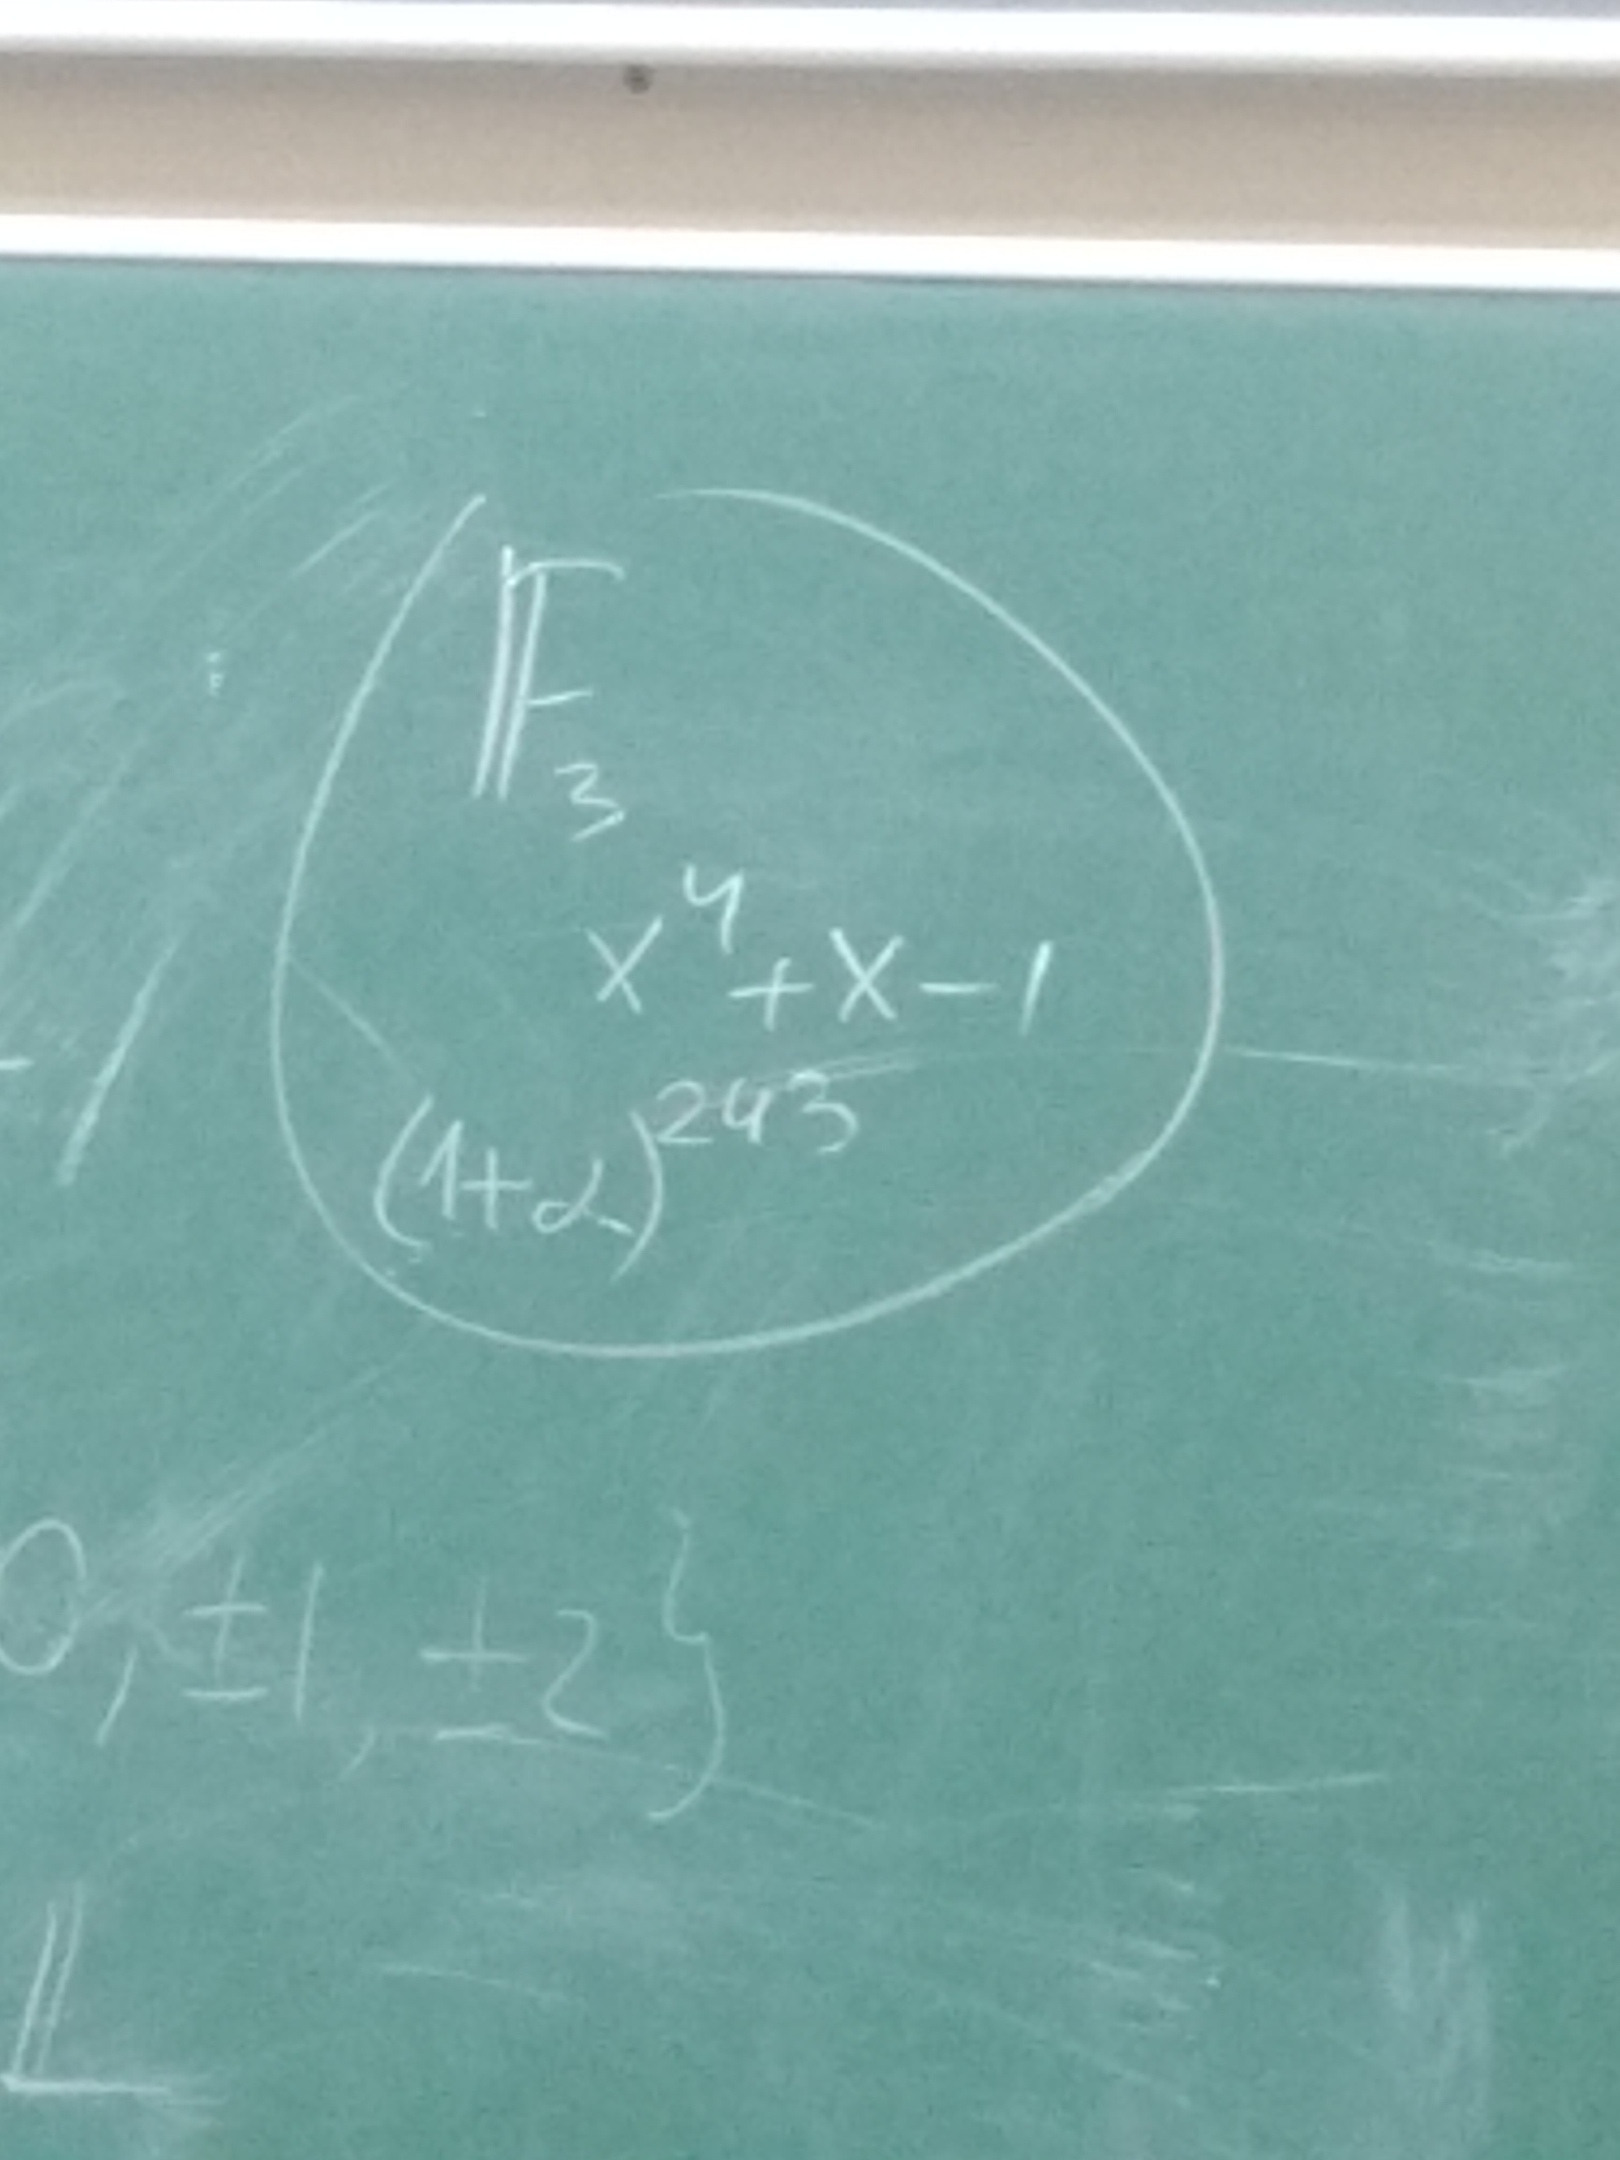 𝔽₃
x⁴+x-1
(1+α)²⁴³
0, ±1, ±2}
𝕃